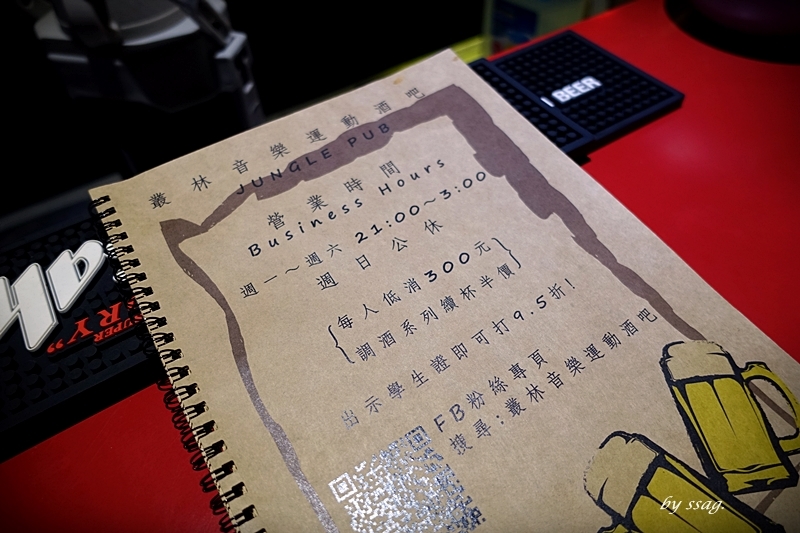 叢林音樂運動酒吧
JUNGLE PUB
營業時間
Business Hours
週一～週六 21:00～3:00
週日公休
{每人低消300元}
{調酒系列續杯半價}
出示學生證即可打9.5折!
FB粉絲專頁
搜尋:叢林音樂運動酒吧
BEER
SUPER
RY"
by ssag.